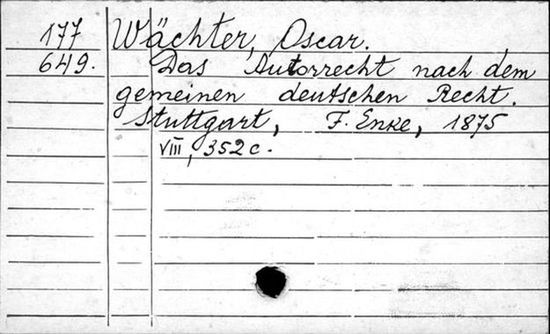 177 Wächter, Oscar.
649. Das Autorrecht nach dem
gemeinen deutschen Recht.
Stuttgart, F. Enke, 1875
VIII, 352 c.